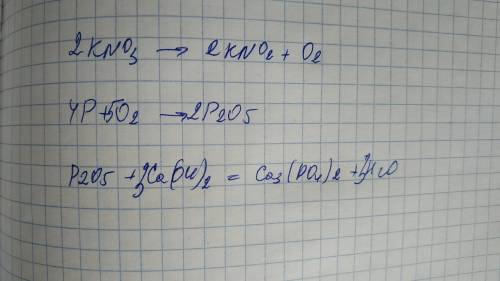 2KNO3 → 2KNO2 + O2
4P+5O2 → 2P2O5
P2O5 + 3Ca(OH)2 = Ca3(PO4)2 + 3H2O